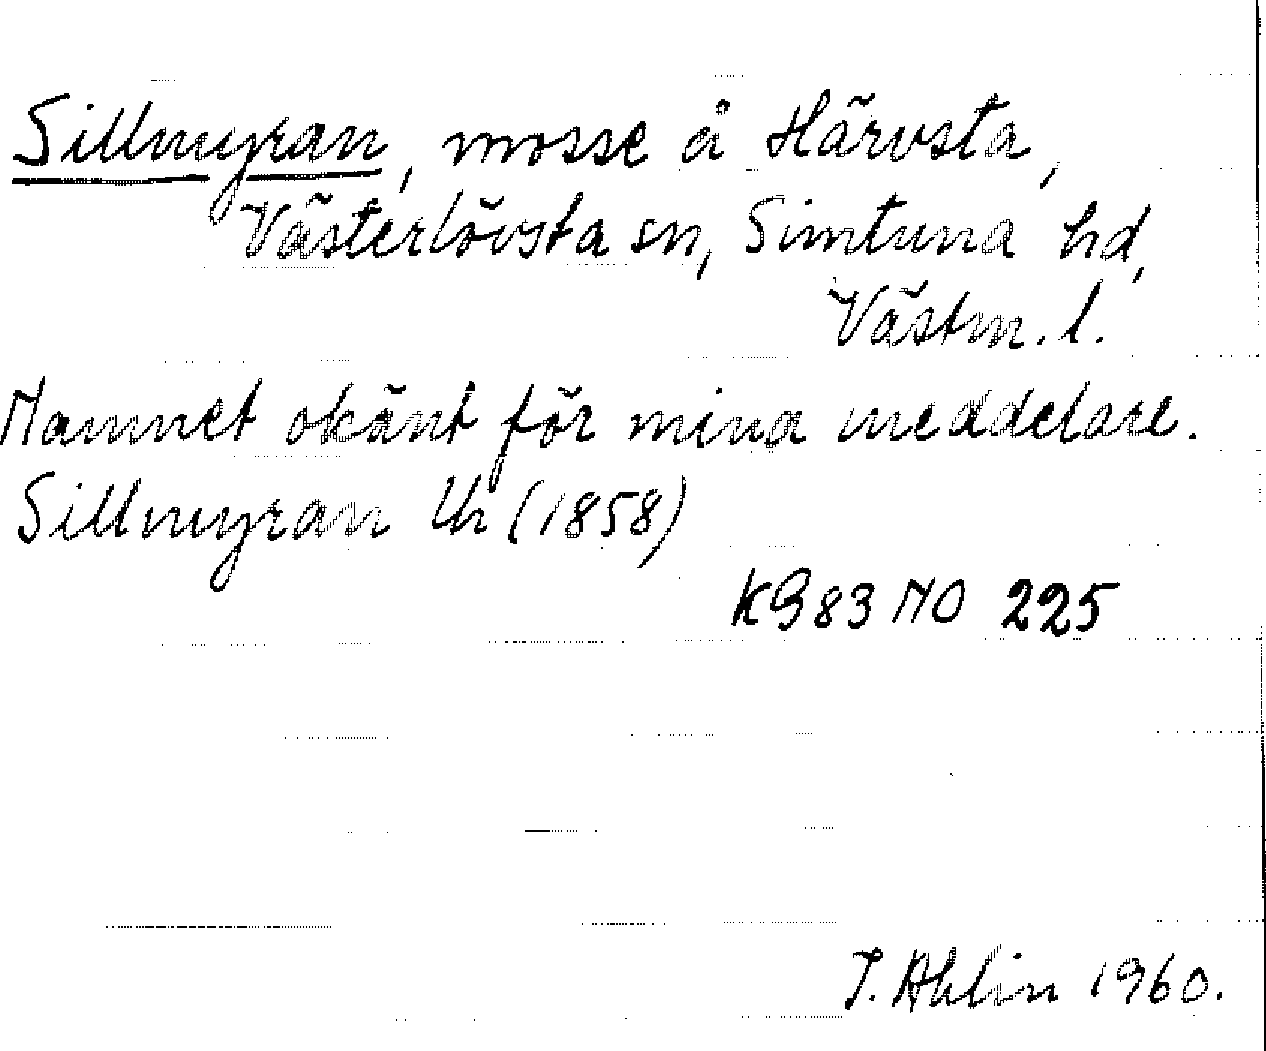 Sillmyran, mosse å Härvsta,
Västerlövsta sn, Simtuna hd,
Västm. l.
Namnet okänt för mina meddelare.
Sillmyran Uh (1858)
KG 83 NO 225
T. Ahlin 1960.